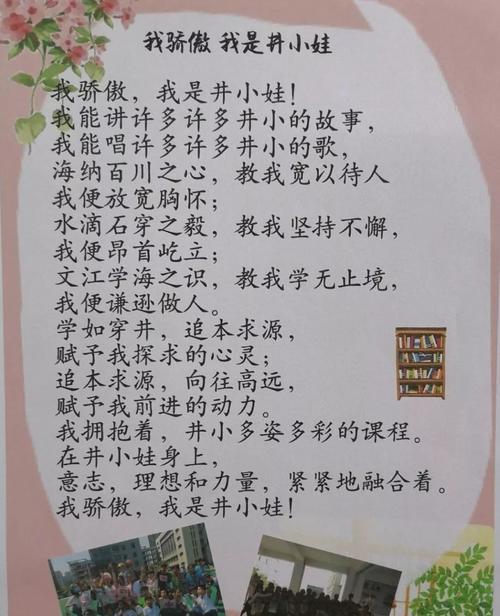 我骄傲 我是井小娃
我骄傲，我是井小娃！
我能讲许多许多井小的故事，
我能唱许多许多井小的歌，
海纳百川之心，教我宽以待人
我便放宽胸怀；
水滴石穿之毅，教我坚持不懈，
我便昂首屹立；
文江学海之识，教我学无止境，
我便谦逊做人。
学如穿井，追本求源，
赋予我探求的心灵；
追本求源，向往高远，
赋予我前进的动力。
我拥抱着，井小多姿多彩的课程。
在井小娃身上，
意志，理想和力量，紧紧地融合着。
我骄傲，我是井小娃！